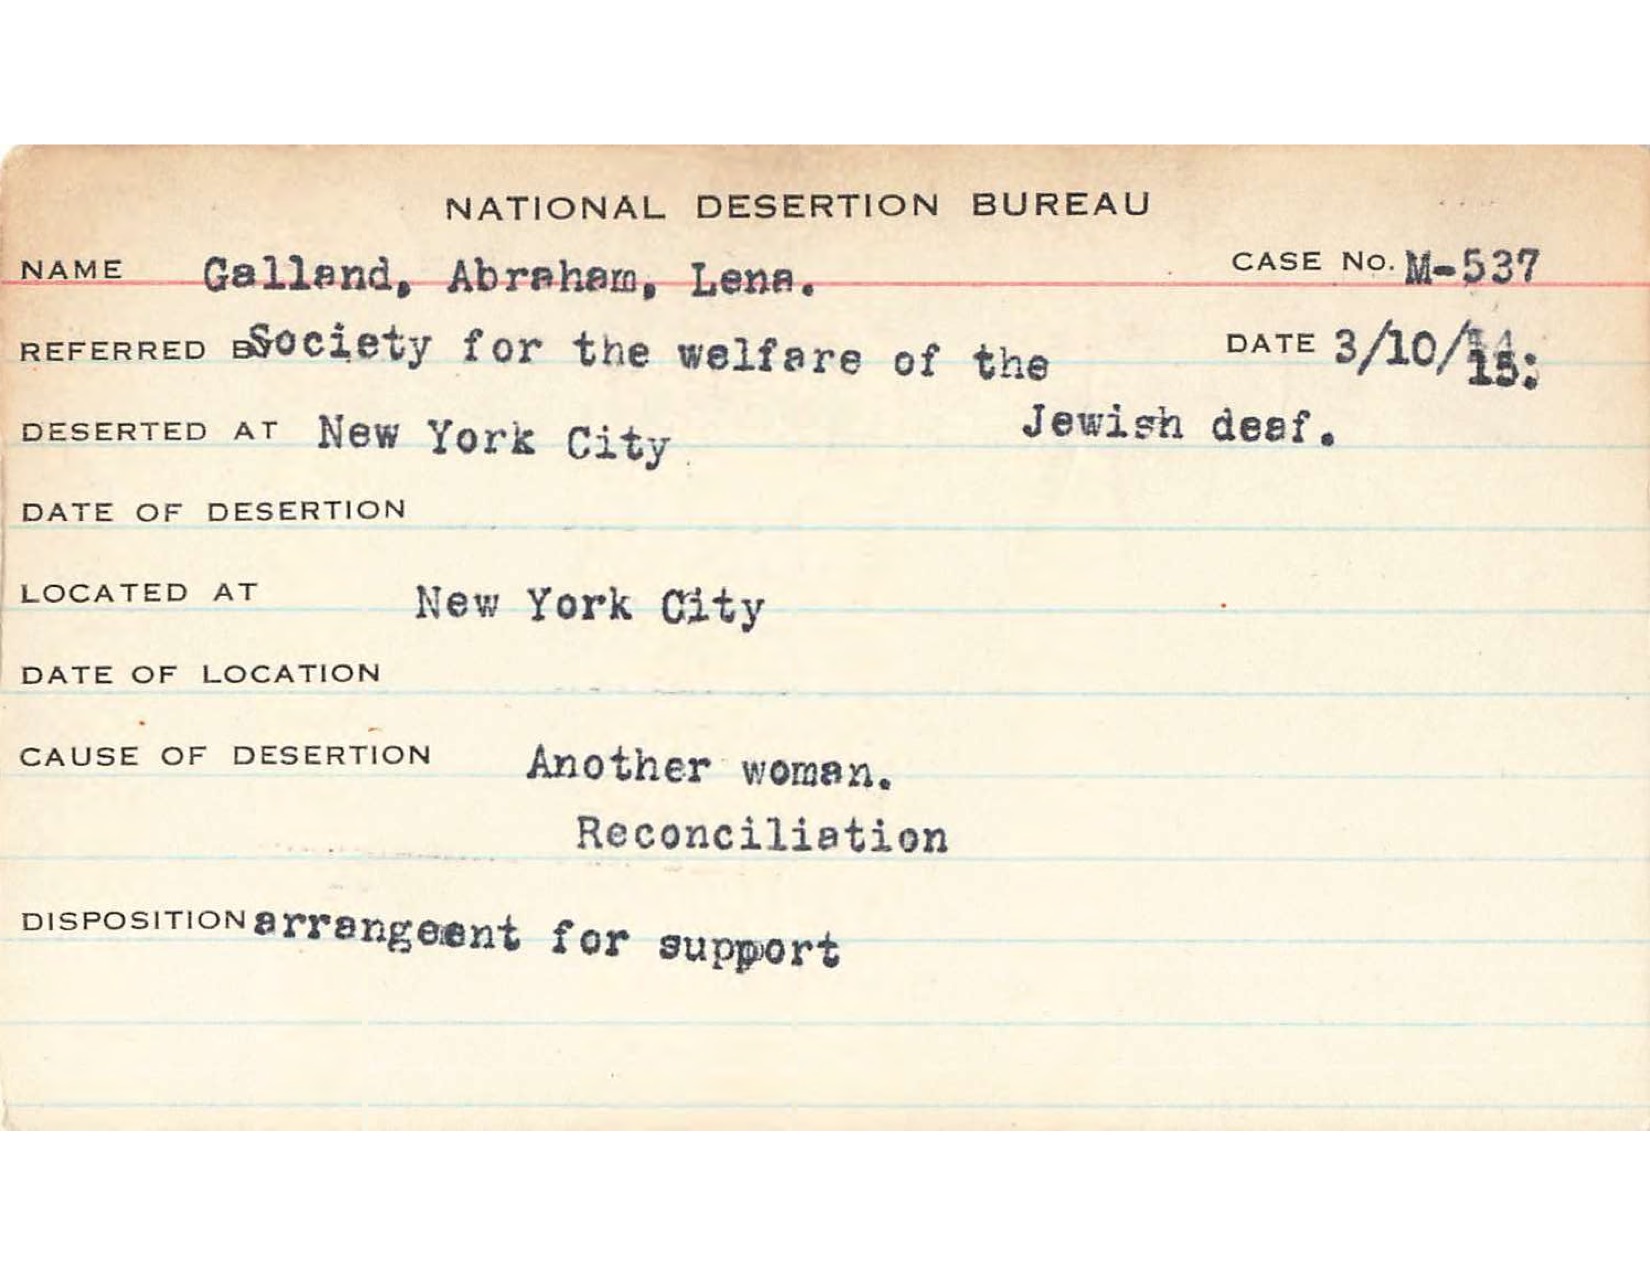 NATIONAL DESERTION BUREAU
NAME Galland, Abraham, Lena. CASE NO. M-537
REFERRED BY Society for the welfare of the DATE 3/10/15.
Jewish deaf.
DESERTED AT New York City
DATE OF DESERTION
LOCATED AT New York City
DATE OF LOCATION
CAUSE OF DESERTION Another woman.
Reconciliation
DISPOSITION arrangeent for support